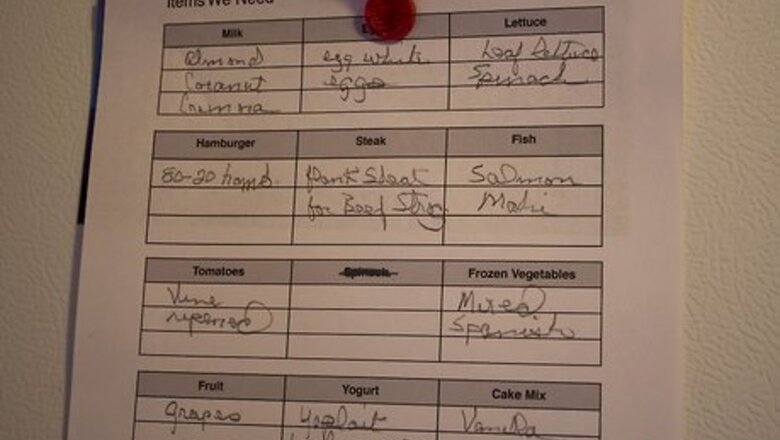 Items We Need
Milk Lettuce
Almond egg white Leaf Lettuce
Coconut eggs Spinach
Hamburger Steak Fish
80-20 hamb. flank Steak Salmon
for Beef Strog Mahi
Tomatoes Spinach Frozen Vegetables
Vine Mixed
ripened
Fruit Yogurt Cake Mix
grapes Yoplait Vanilla